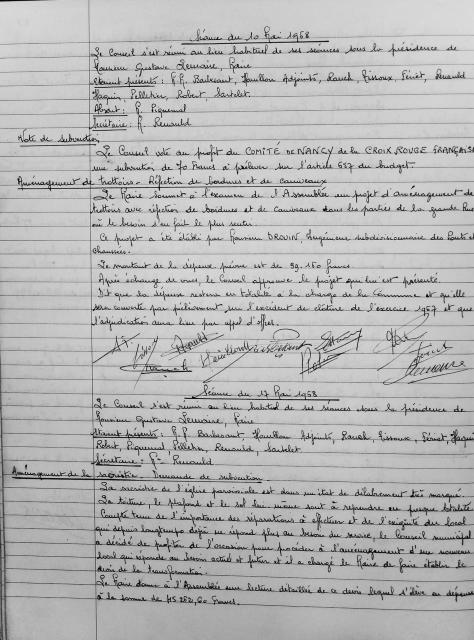 Séance du 10 Mai 1968
Le Conseil s'est réuni au lieu habituel de ses séances sous la présidence de
Monsieur Gustave Lemoine, Maire
Etaient présents : M.M. Barbesant, Houillon Adjoints, Rauch, Tissoux, Fériet, Renauld
Haquin, Pelletier, Robert, Sartelet.
Absent : M. Piquemal
Secrétaire : M. Renauld
Vote de subvention
Le Conseil vote au profit du COMITÉ DE NANCY de la CROIX ROUGE FRANÇAISE
une subvention de 70 Francs à prélever sur l'article 657 du budget.
Aménagement de trottoirs - Réfection de bordures et de caniveaux
Le Maire soumet à l'examen de l'Assemblée un projet d'aménagement de
trottoirs avec réfection de bordures et de caniveaux dans les parties de la grande Rue
où le besoin s'en fait le plus sentir.
Ce projet a été établi par Monsieur DROUIN, Ingénieur subdivisionnaire des Ponts et
Chaussées.
Le montant de la dépense prévue est de 39.150 francs.
Après échange de vues, le Conseil approuve le projet qui lui est présenté.
Dit que la dépense restera en totalité à la charge de la Commune et qu'elle
sera couverte par prélèvement sur l'excédent de clôture de l'exercice 1967 et que
l'adjudication aura lieu par appel d'offres.
Séance du 17 Mai 1968
Le Conseil s'est réuni au lieu habituel de ses séances sous la présidence de
Monsieur Gustave Lemoine, Maire
Etaient présents : M.M. Barbesant, Houillon Adjoints, Rauch, Tissoux, Fériet, Haquin
Robert, Piquemal, Pelletier, Renauld, Sartelet
Secrétaire : Mr Renauld
Aménagement de la sacristie. Demande de subvention
La sacristie de l'église paroissiale est dans un état de délabrement très marqué.
La toiture, le plafond et le sol lui-même sont à reprendre en presque totalité
Compte tenu de l'importance des réparations à effectuer et de l'exiguité du local
qui depuis longtemps déjà ne répond plus au besoin du service, le Conseil municipal
a décidé de profiter de l'occasion pour procéder à l'aménagement d'un nouveau
local qui réponde au besoin actuel et futur et il a chargé le Maire de faire établir le
devis de la transformation.
Le Maire donne à l'Assemblée une lecture détaillée de ce devis lequel s'élève en dépenses
à la somme de 45.282,60 Francs.